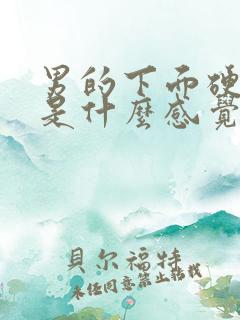 男的下面硬
是什麼感覺
貝尔福特
未经同意禁止转载